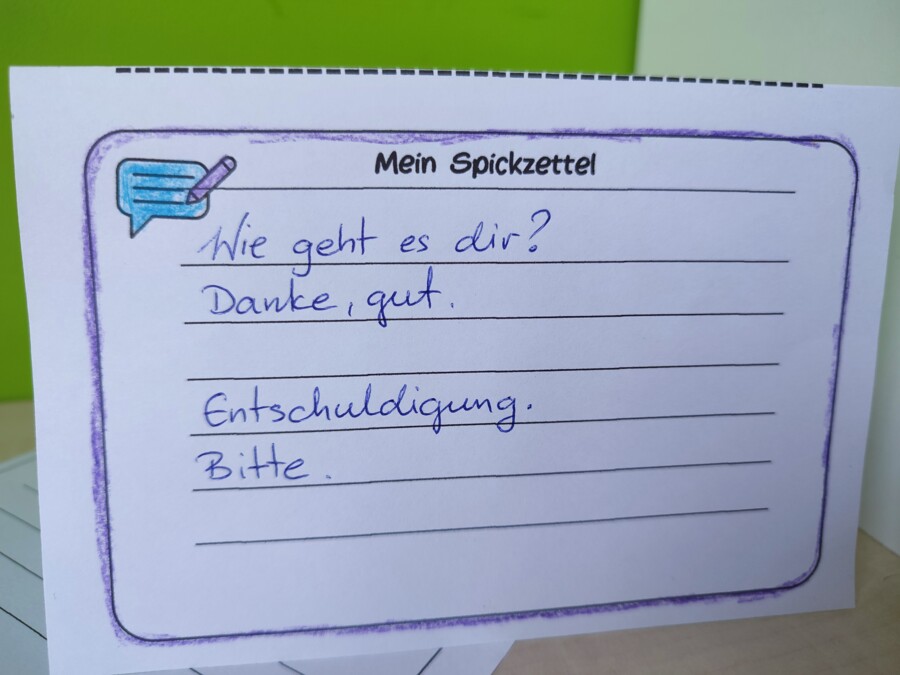 Mein Spickzettel
Wie geht es dir?
Danke, gut.
Entschuldigung.
Bitte.